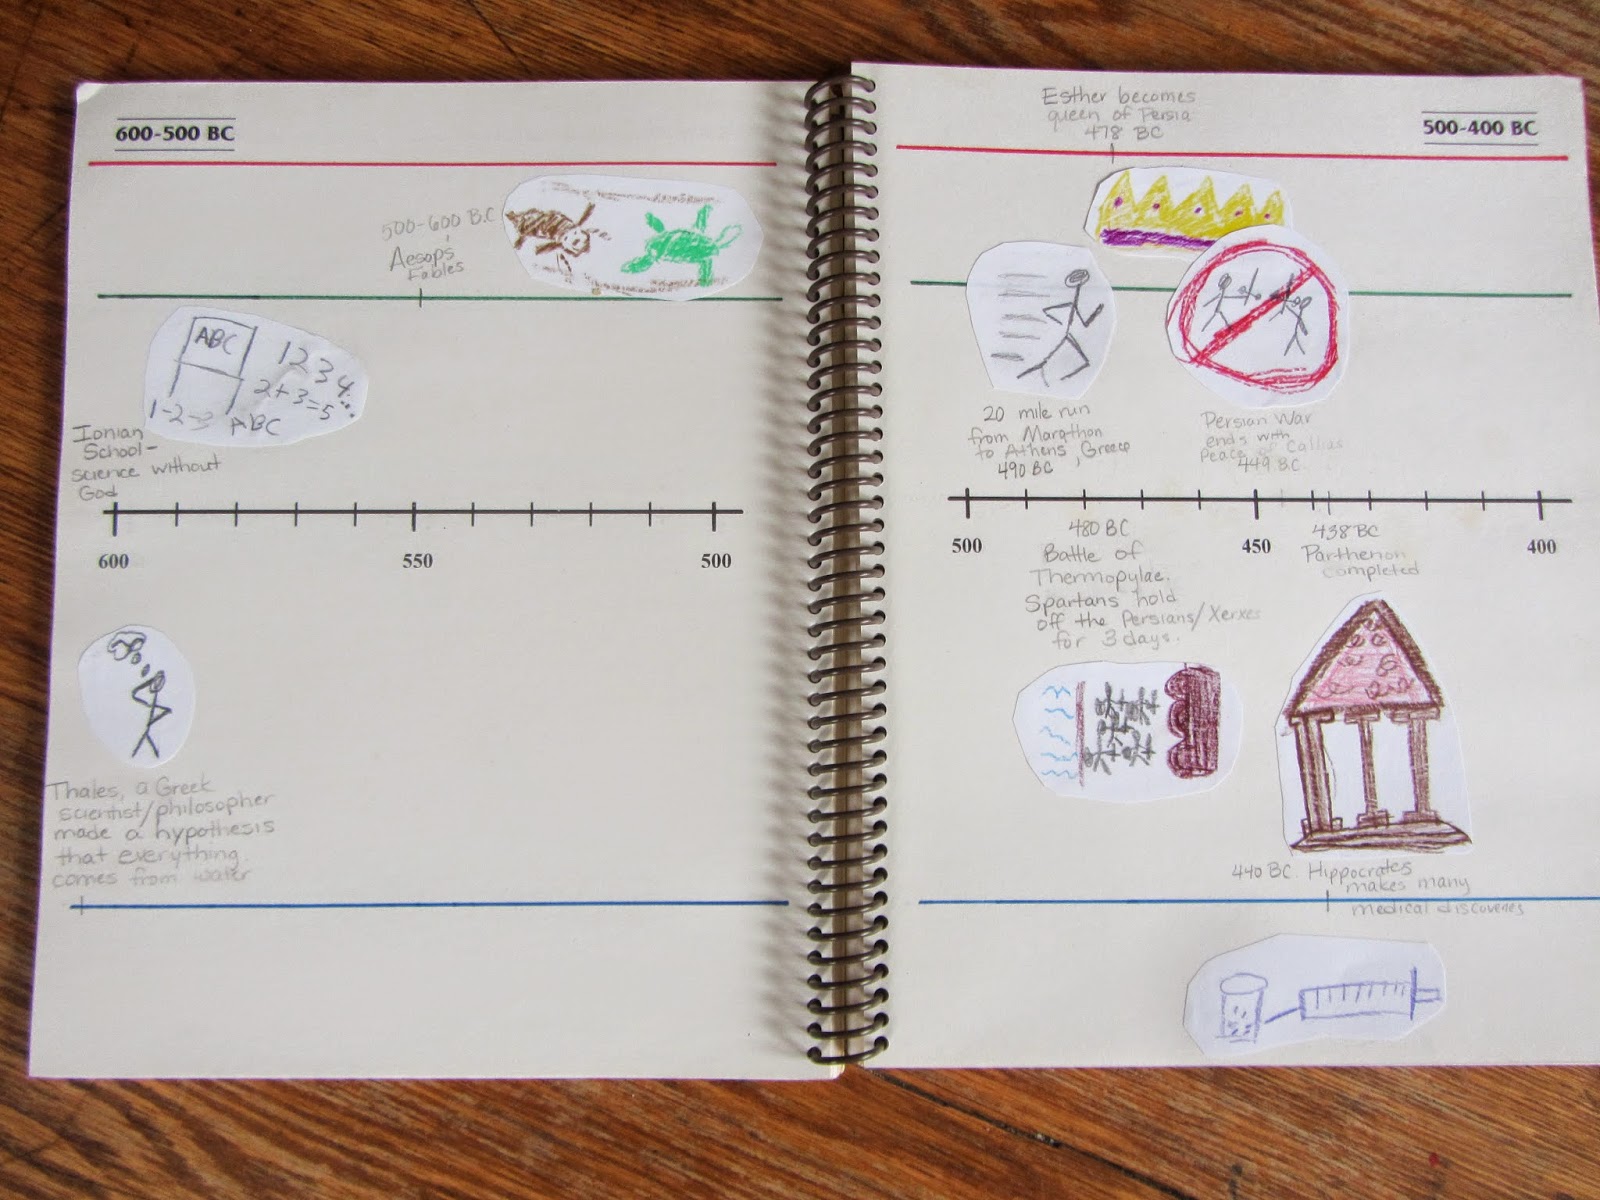 600-500 BC
500-600 B.C
Aesop's
Fables
ABC
1 2 3 4...
2+3=5
1-2-3
ABC
Ionian
School-
science without
God
600
550
500
Thales, a Greek
scientist/philosopher
made a hypothesis
that everything
comes from water
Esther becomes
queen of Persia
478 BC
500-400 BC
20 mile run
from Marathon
to Athens, Greece
490 BC
Persian War
ends with
Peace of Callias
449 BC
500
450
400
480 BC
Battle of
Thermopylae.
Spartans hold
off the Persians/Xerxes
for 3 days.
438 BC
Parthenon
completed
440 BC. Hippocrates
makes many
medical discoveries